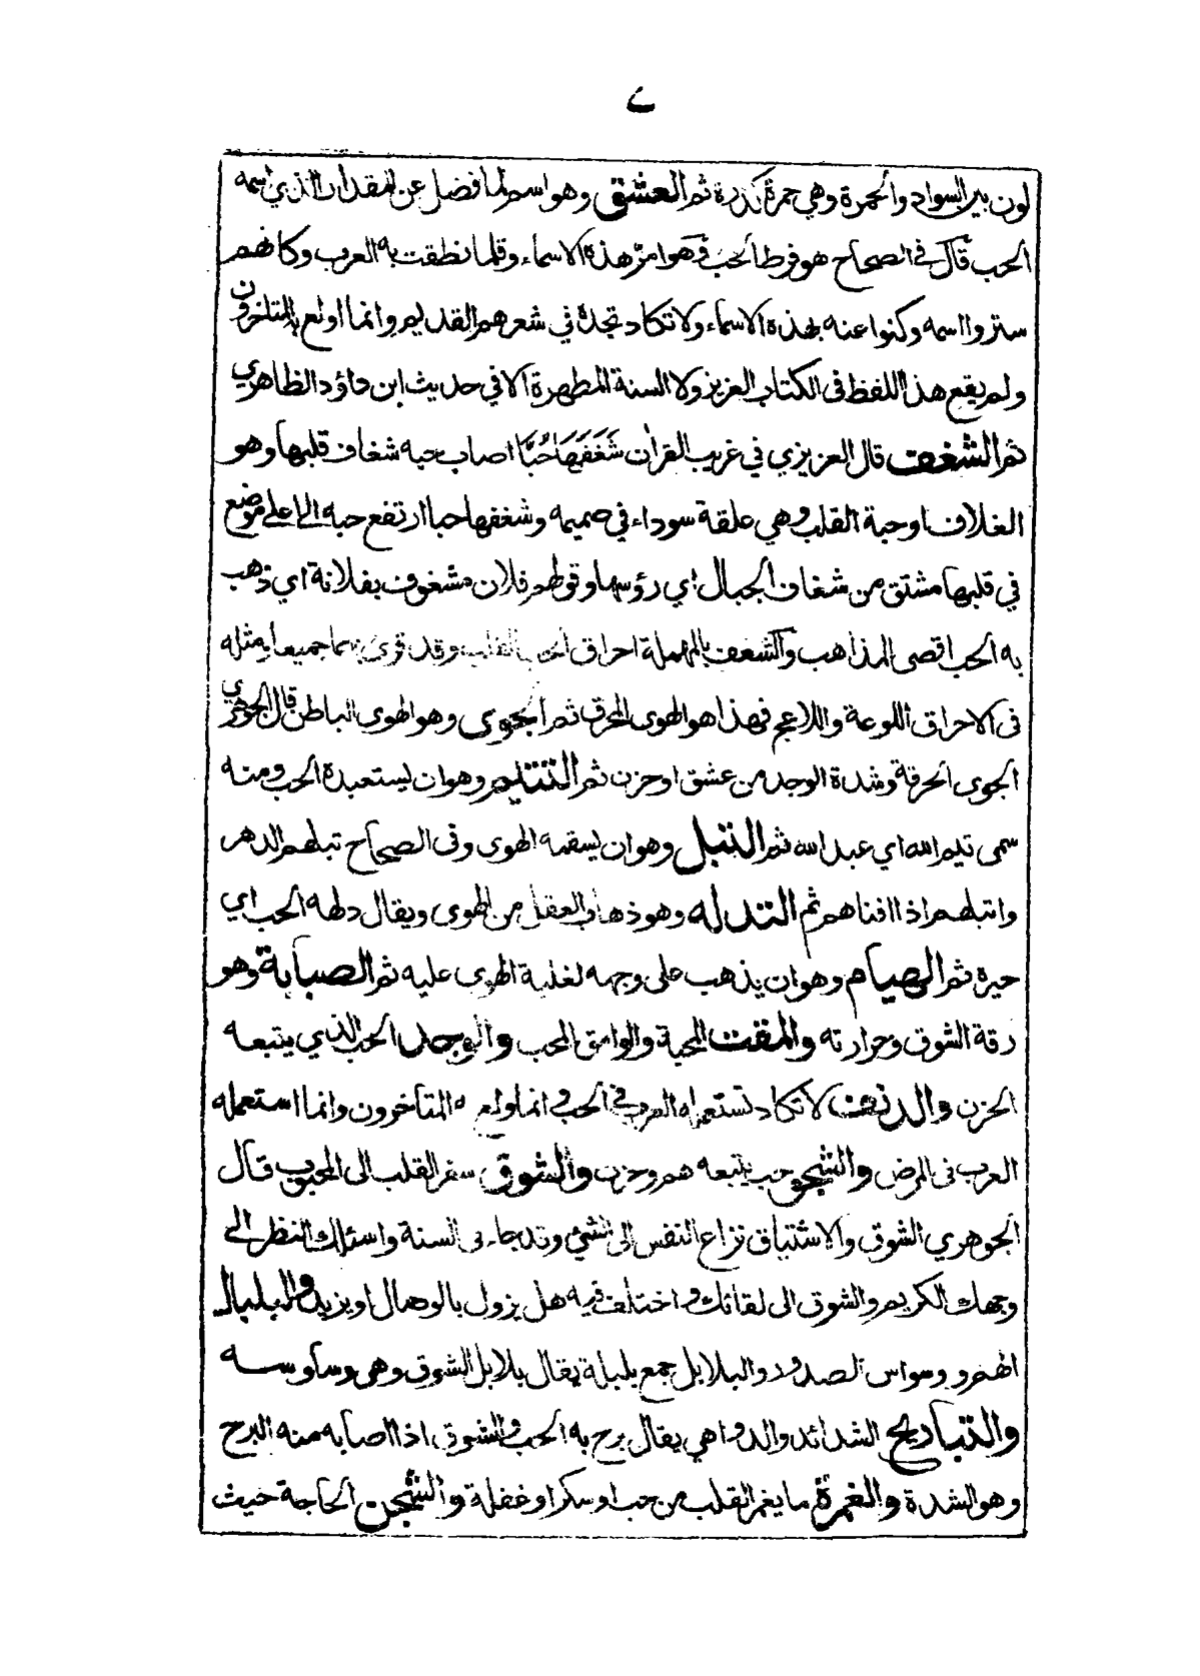 ٧
لون بين السواد والحمرة وهي حمرة كدرة ثم العشق وهو اسم لما فضل عن المقدار الذي اسمه
الحب قال في الصحاح هو فرط الحب وهو امرّ هذه الاسماء وقلما نطقت به العرب وكانهم
ستروا اسمه وكنوا عنه بهذه الاسماء ولا تكاد تجده في شعرهم القديم وانما اولع به المتاخرون
ولم يقع هذا اللفظ في الكتاب العزيز ولا السنة المطهرة الا في حديث ابن داؤد الظاهري
ثم الشغف قال العزيزي في غريب القرآن شَغَفَهَا حُبًّا اصاب حبه شغاف قلبها وهو
الغلاف او حبة القلب وهي علقة سوداء في صميمه وشغفها حبا ارتفع حبه الى اعلى موضع
في قلبها مشتق من شغاف الجبال اي رؤسها وقولهم فلان مشغوف بفلانة اي ذهب
به الحب اقصى المذاهب والشعف بالمهملة احراق الحب القلب وقد قرئ بهما جميعا ومثله
في الاحراق اللوعة واللاعج فهذا هو الهوى المحرق ثم الجوى وهو الهوى الباطن قال الجوهري
الجوى الحرقة وشدة الوجد من عشق او حزن ثم التتيم وهو ان يستعبده الحب ومنه
سمى تيم الله اي عبد الله ثم التبل وهو ان يسقمه الهوى وفي الصحاح تبلهم الدهر
واتبلهم اذا افناهم ثم التدله وهو ذهاب العقل من الهوى ويقال دلهه الحب اي
حيره ثم الهيام وهو ان يذهب على وجهه لغلبة الهوى عليه ثم الصبابة وهو
رقة الشوق وحرارته والمقت المحبة والوامق المحب والوجد الحب الذي يتبعه
الحزن والدنف لا تكاد تستعمله العرب في الحب وانما ولع به المتأخرون وانما استعمله
العرب في المرض والشجو حب يتبعه هم وحزن والشوق سفر القلب الى المحبوب قال
الجوهري الشوق والاشتياق نزاع النفس الى الشئ وقد جاء في السنة واسئلك النظر الى
وجهك الكريم والشوق الى لقائك واختلف فيه هل يزول بالوصال او يزيد والبلبال
الهم ووسواس الصدور والبلابل جمع بلبلة يقال بلابل الشوق وهي وساوسه
والتباريح الشدائد والدواهي يقال برح به الحب والشوق اذا اصابه منه البرح
وهو الشدة والغمرة ما يغمر القلب من حب او سكر او غفلة والشجن الحاجة حيث